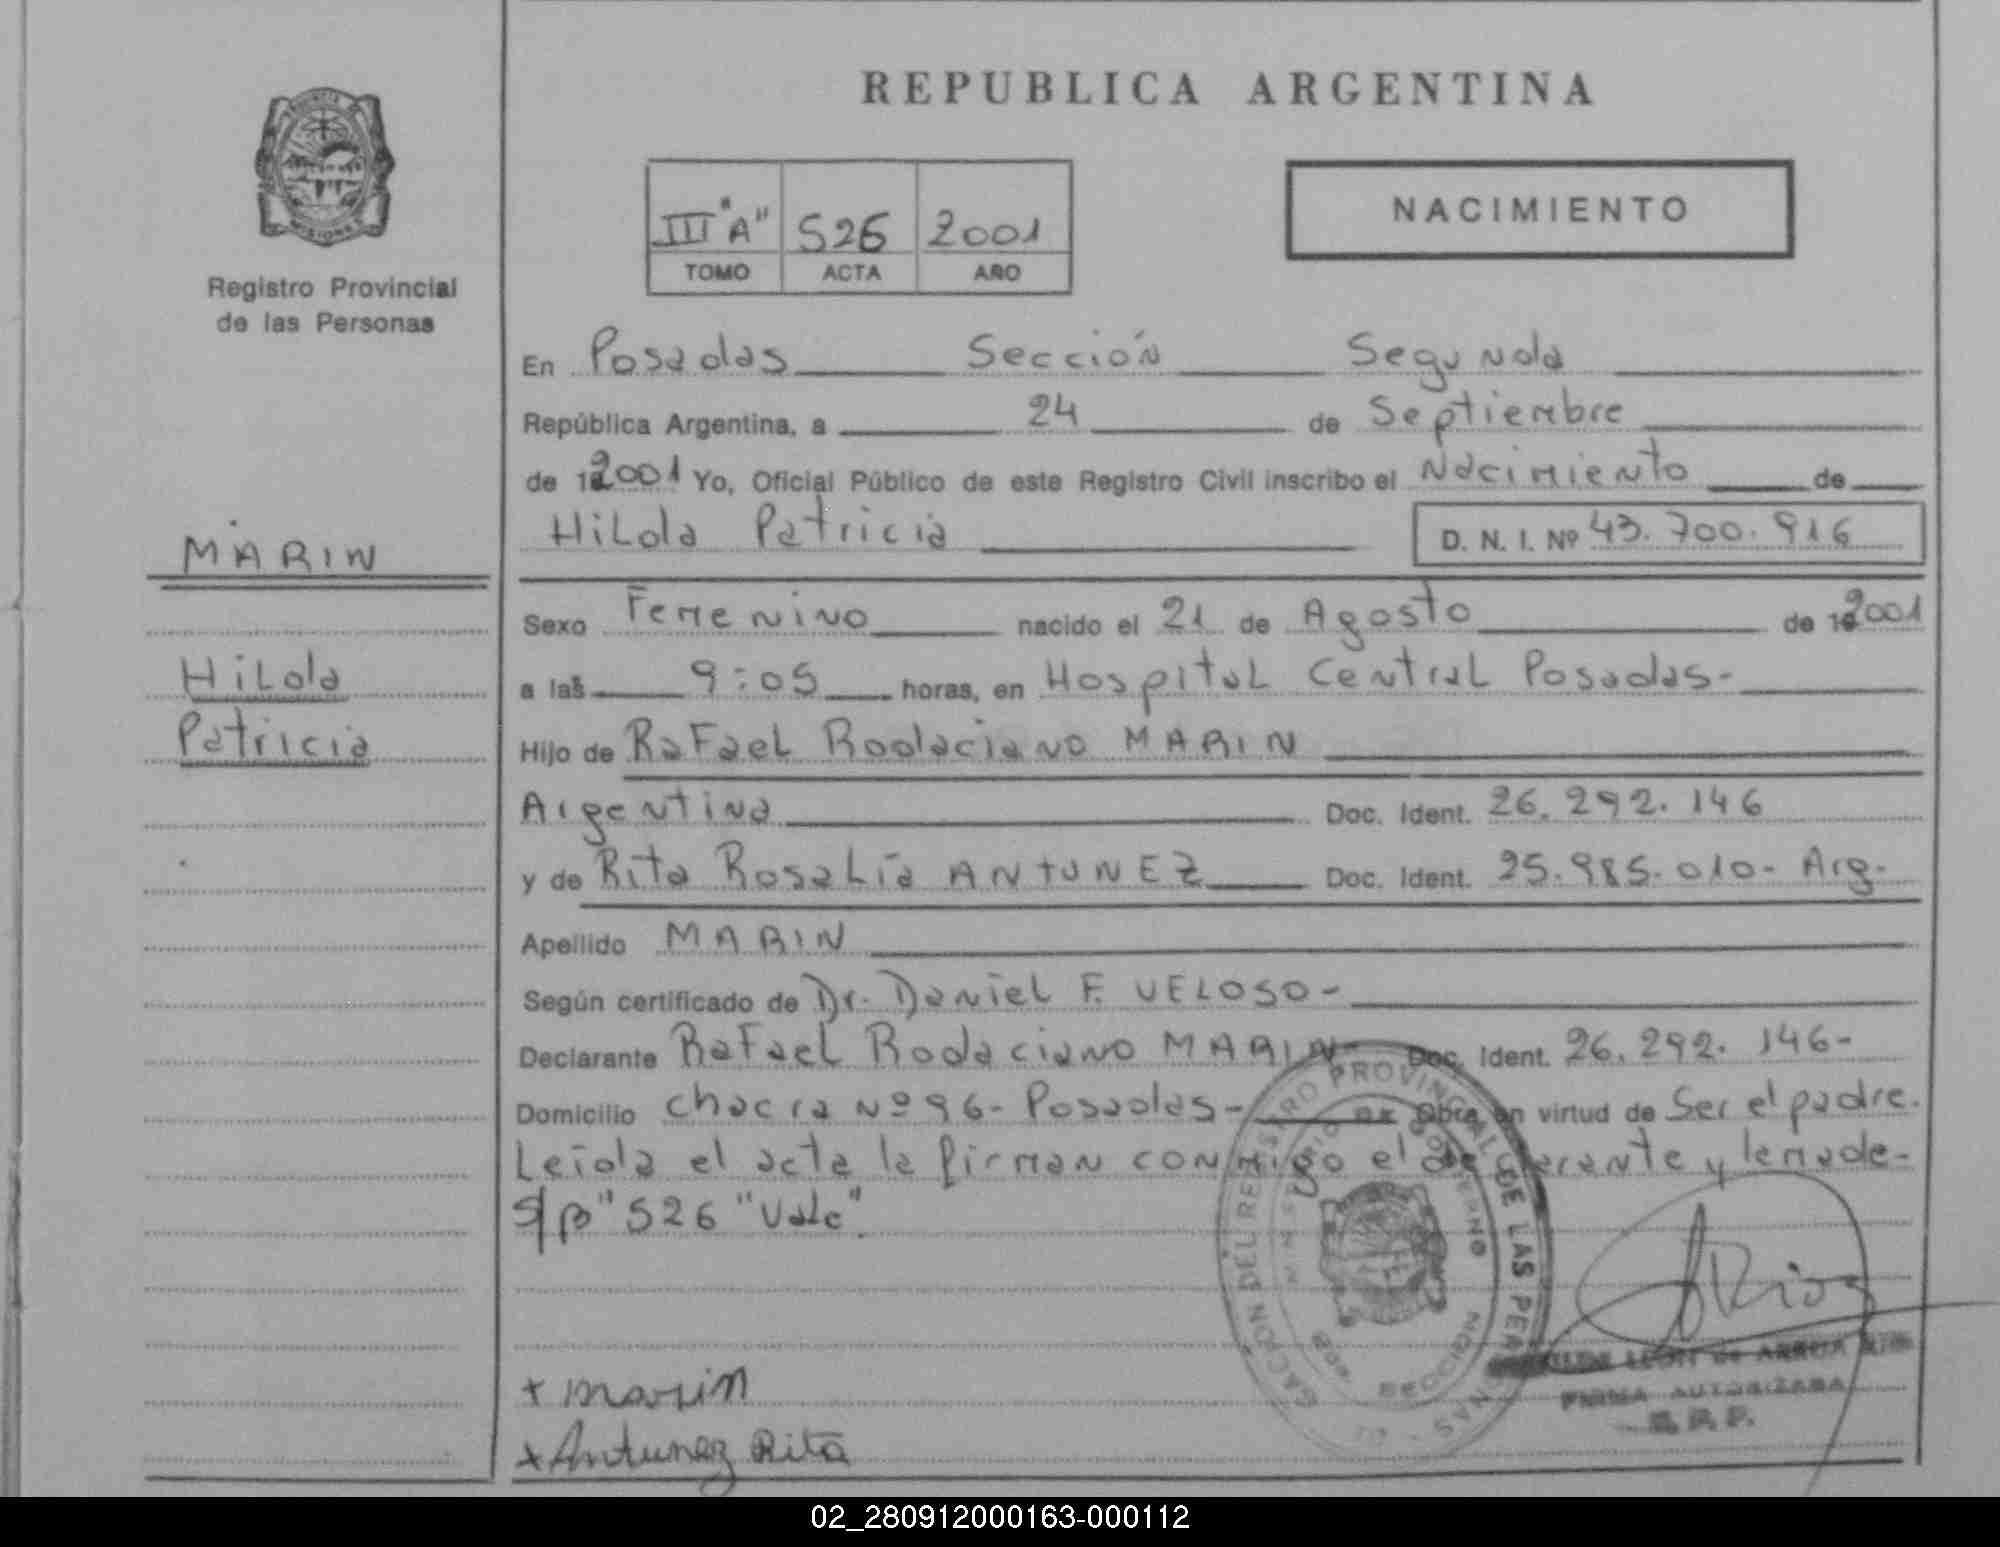 REPUBLICA ARGENTINA
NACIMIENTO
III "A" 526 2001
TOMO ACTA AÑO
Registro Provincial
de las Personas
MARIN
Hilda
Patricia
En Posadas Sección Segunda
República Argentina, a 24 de Septiembre
de 2001 Yo, Oficial Público de este Registro Civil inscribo el Nacimiento de
Hilda Patricia D. N. I. Nº 43.700.916
Sexo Femenino nacido el 21 de Agosto de 2001
a las 9:05 horas, en Hospital Central Posadas-
Hijo de Rafael Rodaciano MARIN
Argentina Doc. Ident. 26.292.146
y de Rita Rosalía ANTUNEZ Doc. Ident. 25.985.010- Arg.
Apellido MARIN
Según certificado de Dr. Daniel F. VELOSO-
Declarante Rafael Rodaciano MARIN- Doc. Ident. 26.292.146-
Domicilio chacra Nº 96- Posadas- Obra en virtud de Ser el padre.
Leída el acta la firman conmigo el declarante y la madre-
S/p "526 "Vale".
+ marin
+ Antunez Rita
REGISTRO PROVINCIAL DE LAS PERSONAS
SECCION
A Rios
LEON de ARRUA
FIRMA AUTORIZADA
R. P. P.
02_280912000163-000112